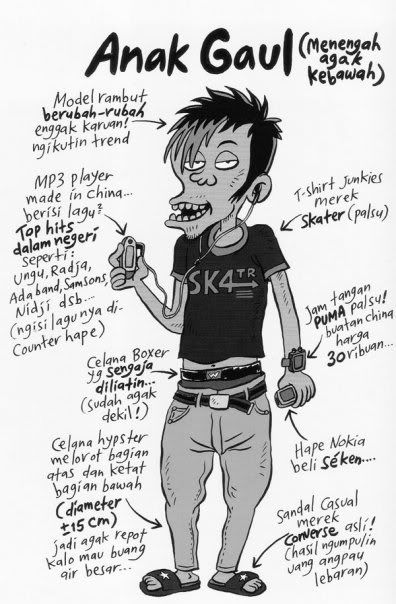 Anak Gaul (Menengah
agak
kebawah)
Model rambut
berubah-rubah
enggak karuan!
ngikutin trend
MP3 player
made in China...
berisi lagu²
Top hits
dalam negeri
seperti:
Ungu, Radja,
Adaband, Samsons,
Nidji dsb...
(ngisi lagunya di-
Counter hape)
T-shirt Junkies
merek
Skater (palsu)
SK4TR
Jam tangan
PUMA palsu!
buatan china
harga
30 ribuan...
Celana Boxer
yg sengaja
diliatin...
(sudah agak
dekil!)
Celana hypster
melorot bagian
atas dan ketat
bagian bawah
(diameter
±15 cm)
jadi agak repot
kalo mau buang
air besar...
Hape Nokia
beli séken....
Sandal Casual
merek
Converse asli!
(hasil ngumpulin
uang angpau
lebaran)